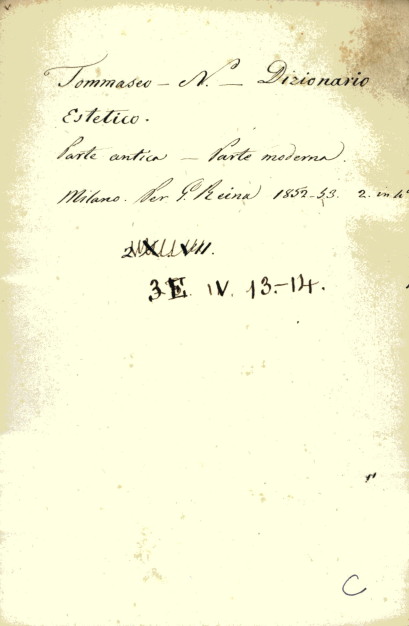 Tommaseo – N.º – Dizionario
Estetico.
Parte antica – Parte moderna.
Milano. Per G. Reina 1852-53. 2. in 4º
3 E. IV. 13.-14.
C